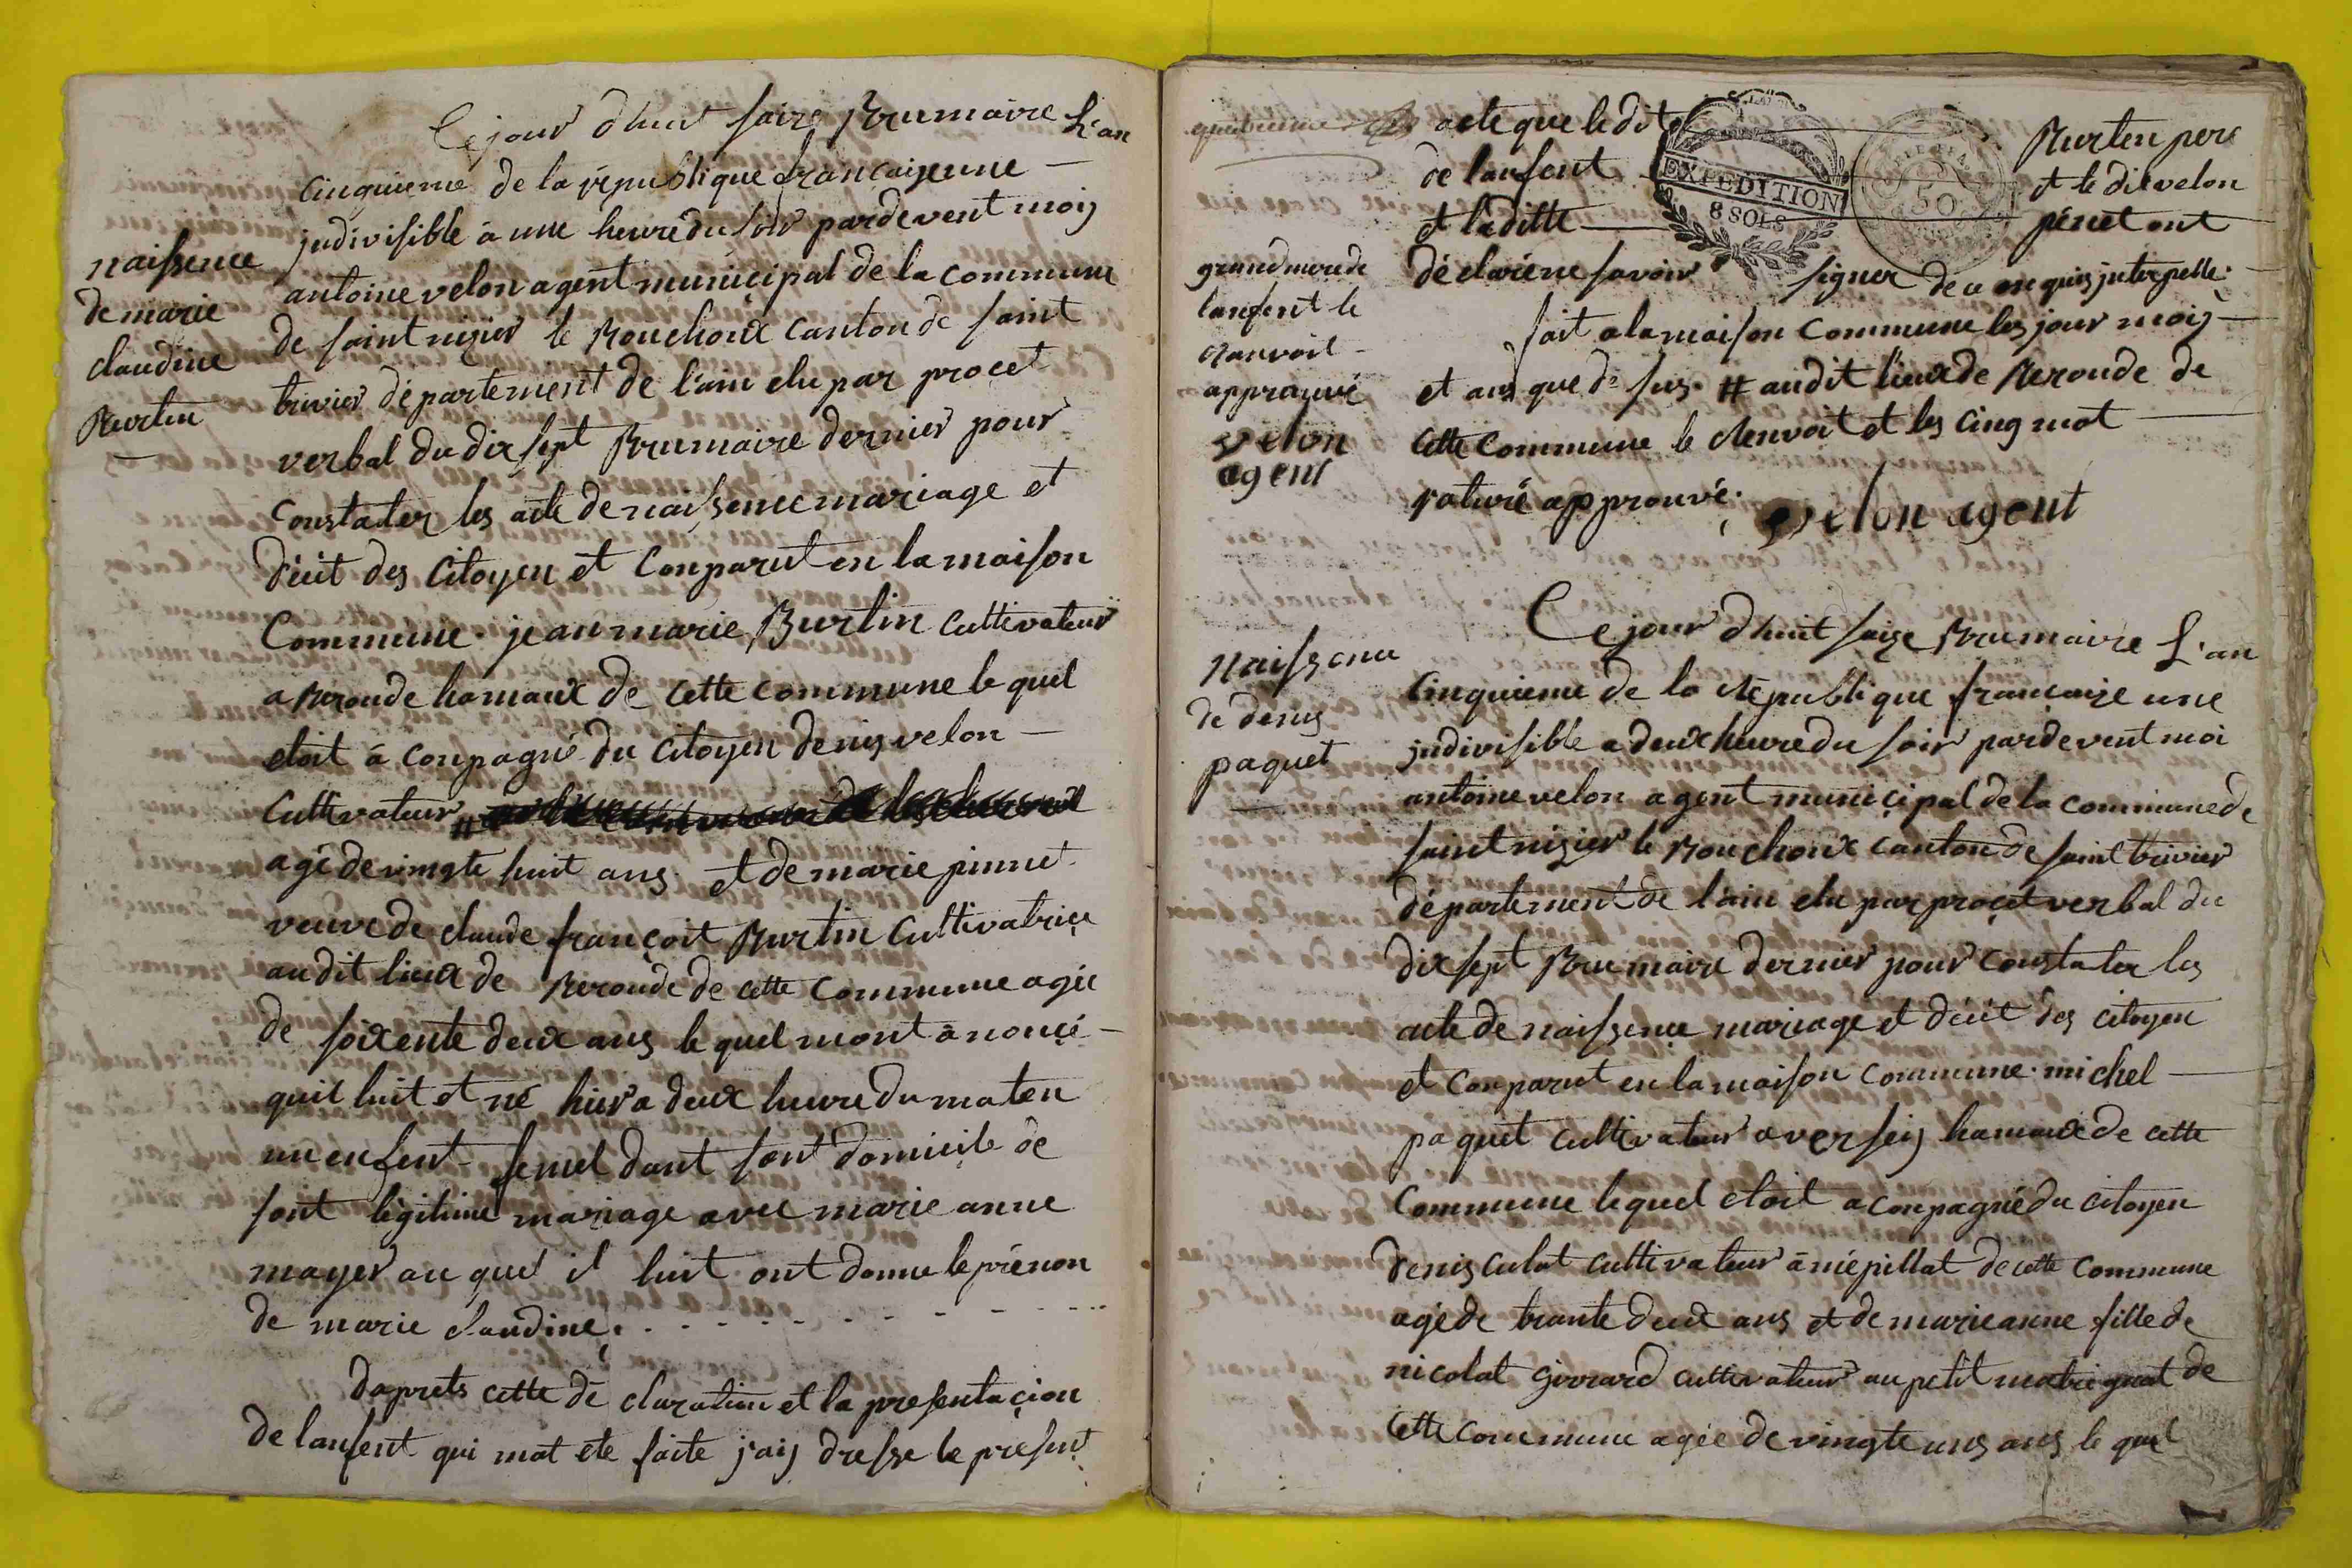 Ce jour dhui saize Brumaire L'an
cinquieme de la republique francaize une
indivisible a une heure du soir pardevent moij
naissence
de marie
claudine
Burtin
antoine velon agent municipal de la commune
de saint nizier le Bouchoux canton de saint
trivier département de l'ain elu par procet
verbal du dix sept Brumaire dernier pour
constater les acte de naissence mariage et
décit des citoyen et conparut en la maison
Commune jean marie Burtin cultivateur
a Beronde hamaux de cette commune le quel
etoit a conpagné du citoyen denis velon
Cultivateur #
agé de vingte huit ans et de marie pinnet
veuve de claude françoit Burtin cultivatrice
audit lieux de Beronde de cette commune agée
de soixente deux ans le quel mont anoncé
quil luit et né hier a deux heure du maten
un enfent femel dant sont domicile de
sont legitime mariage avec marie anne
mayer au quel il luit ont donne le prénon
de marie claudine
daprets cette declaration et la presentacion
de lanfent qui mat ete faite jaij dresse le present
acte que le dit Burten pere
de lanfent et le dit velon
et laditte pénet ont
déclaré ne savoir signer de ce enquis interpellé
EXPEDITION
8 SOLS
50
grand mere de
lanfent le
ranvoit
approuvé
velon
agent
fait a la maison commune les jour moij
et ans que dessus # audit lieux de Beronde de
cette commune le renvoit et les cinq mot
raturé approuvé
velon agent
Naissence
de denis
paquet
Ce jour dhuit saize Brumaire L'an
Cinquieme de la République francaize une
indivisible a deux heure du soir pardevent moi
antoine velon agent municipal de la commune de
saint nizier le Bouchoux canton de saint trivier
département de l'ain elu par procet verbal du
dix sept Brumaire dernier pour constater les
acte de naissence mariage et décit des citoyen
et conparut en la maison commune michel
paquet cultivateur a verseij hamaux de cette
Commune lequel etoit aconpagné du citoyen
denis culat cultivateur à mépillat de cette commune
agé de trante deux ans et de marie anne fille de
nicolat girrard cultivateur au petit matrignat de
cette commune agée de vingte uns ans le quel